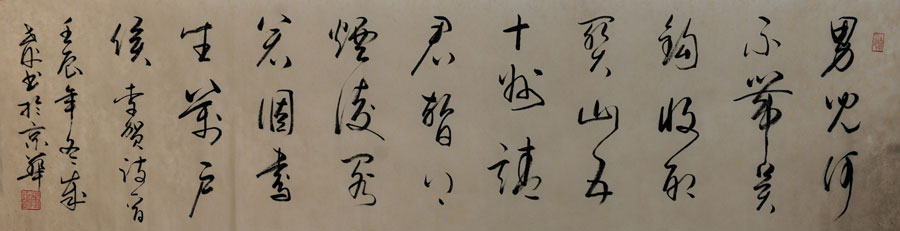 男兒何
不帶吳
鈎收取
關山五
十州請
君暫上
煙凌閣
若個書
生萬戶
侯 李賀詩一首
壬辰年冬
書於京華